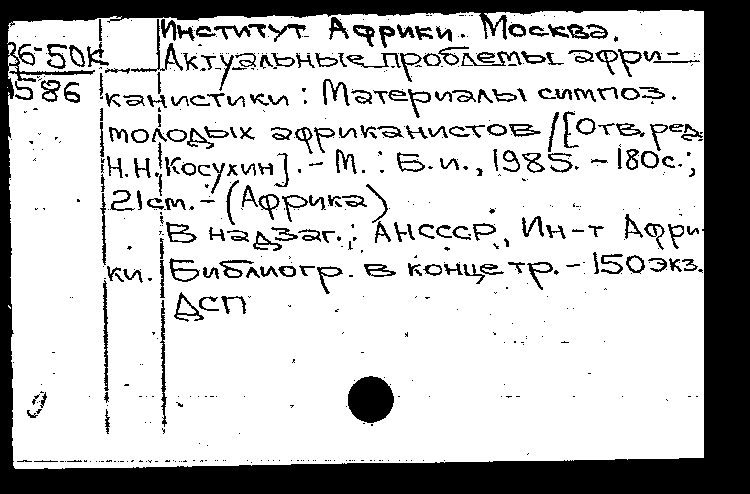 Институт Африки. Москва.
36-50К Актуальные проблемы афри-
1586 канистики: Материалы симпоз.
молодых африканистов / [Отв. ред.
Н.Н. Косухин]. - М. : Б.и., 1985. - 180с.;
21см. - (Африка)
В надзаг.: АНСССР, Ин-т Афри-
ки. Библиогр. в конце тр. - 150экз.
ДСП